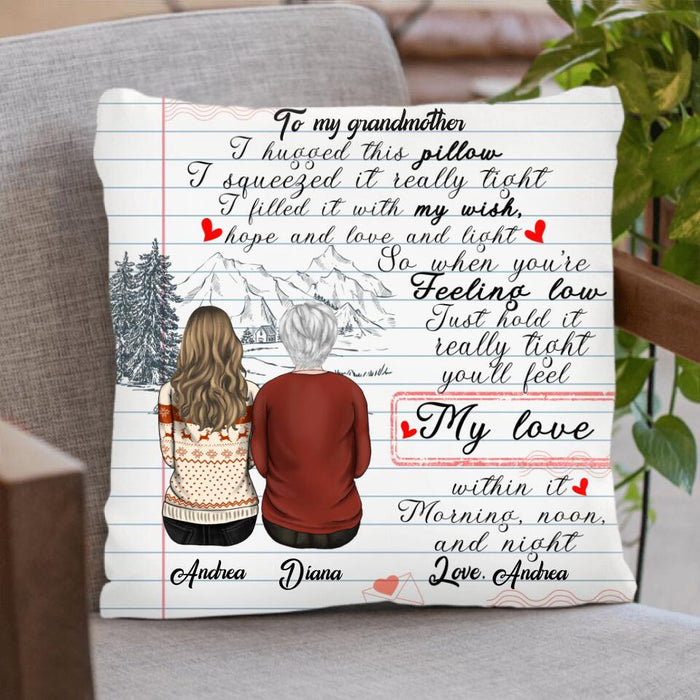 To my grandmother
I hugged this pillow
I squeezed it really tight
I filled it with my wish,
hope and love and light
So when you're
Feeling low
Just hold it
really tight
you'll feel
My love
within it
Morning, noon,
and night
Love, Andrea
Andrea Diana